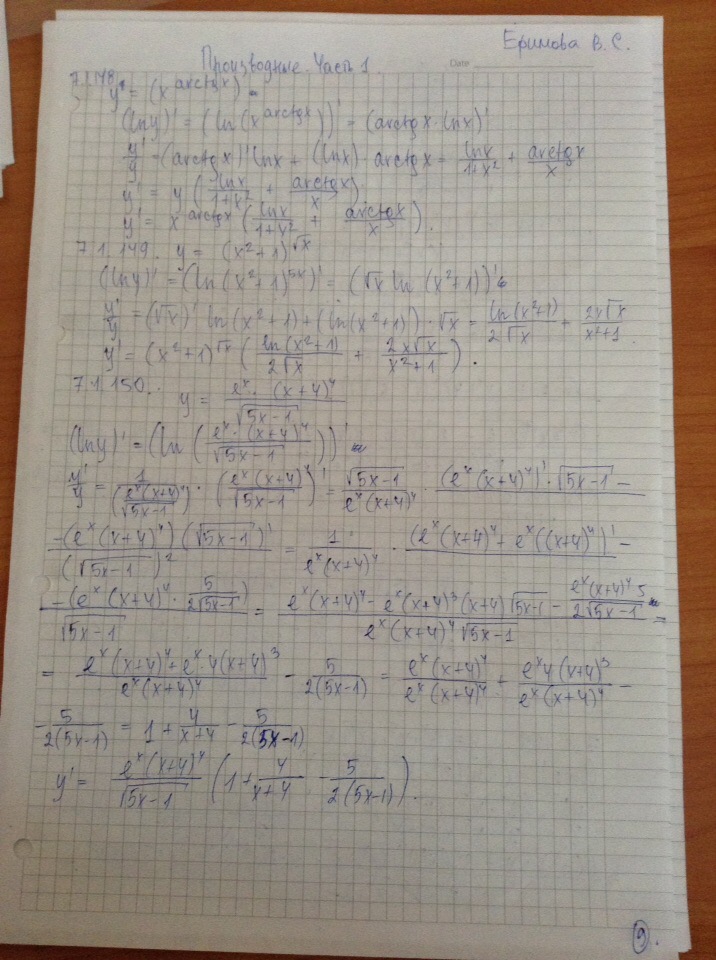 Еримова В. С.
Производные. Часть 1.
Date
7.1.148
y' = (x^arctgx) =
(lny)' = (ln(x^arctgx))' = (arctgx·lnx)'
y'/y = (arctgx)'lnx + (lnx)' arctgx = lnx/(1+x²) + arctgx/x
y' = y (lnx/(1+x²) + arctgx/x)
y' = x^arctgx (lnx/(1+x²) + arctgx/x).
7.1.149. y = (x²+1)^√x
(lny)' = (ln(x²+1)^5x)' = (√x ln (x²+1))'
y'/y = (√x)' ln(x²+1) + (ln(x²+1)')·√x = ln(x²+1)/(2√x) + 2x√x/(x²+1).
y' = (x²+1)^√x (ln(x²+1)/(2√x) + 2x√x/(x²+1)).
7.1.150. y = e^x·(x+4)⁴/√(5x-1)
(lny)' = (ln(e^x·(x+4)⁴/√(5x-1)))' =
y'/y = 1/(e^x(x+4)⁴/√(5x-1)) · (e^x(x+4)⁴/√(5x-1))' = √(5x-1)/(e^x(x+4)⁴) · (e^x(x+4)⁴)'·√(5x-1) -
-(e^x(x+4)⁴)(√(5x-1))'/(√(5x-1))² = 1/(e^x(x+4)⁴) · (e^x(x+4)⁴ + e^x((x+4)⁴)' -
-(e^x(x+4)⁴ · 5/(2√(5x-1)))/√(5x-1) = (e^x(x+4)⁴ - e^x(x+4)³(x+4)√(5x-1) - e^x(x+4)⁴5/(2√(5x-1)))/(e^x(x+4)⁴√(5x-1)) =
= (e^x(x+4)⁴+e^x·4(x+4)³)/(e^x(x+4)⁴) - 5/(2(5x-1)) = e^x(x+4)⁴/(e^x(x+4)⁴) + e^x4(x+4)³/(e^x(x+4)⁴) -
- 5/(2(5x-1)) = 1 + 4/(x+4) - 5/(2(5x-1))
y' = e^x(x+4)⁴/√(5x-1) (1 + 4/(x+4) - 5/(2(5x-1))).
9.